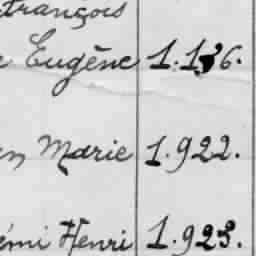 françois
Eugène 1.136.
Marie 1.922.
Henri 1.923.